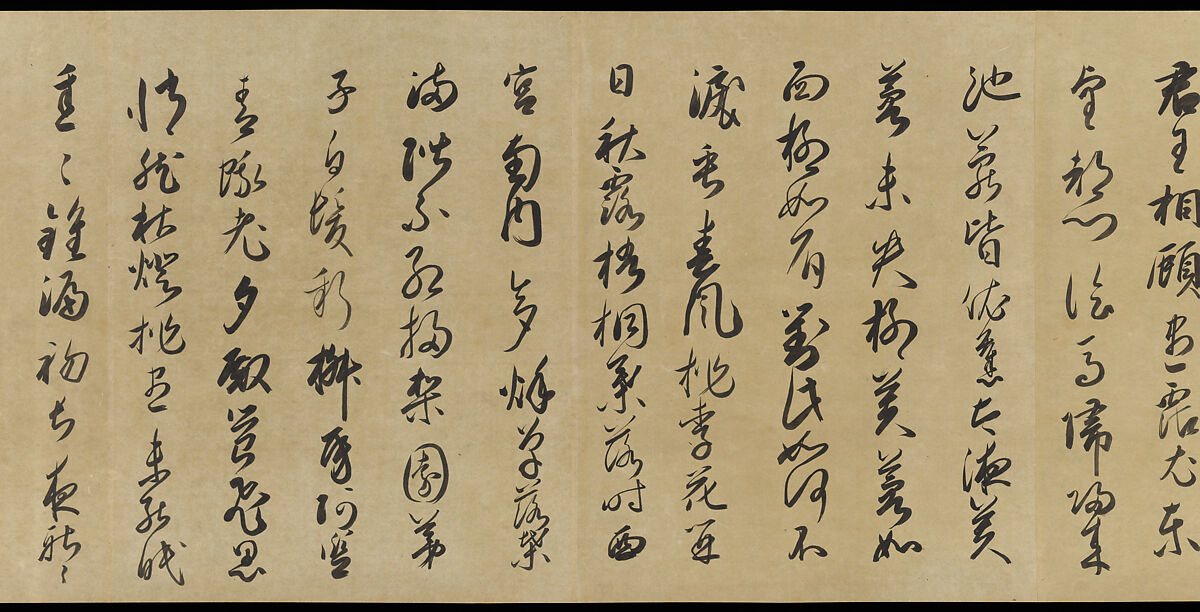 君王相顧盡霑衣東
望都門信馬歸歸來
池苑皆依舊太液芙
蓉未央柳芙蓉如
面柳如眉對此如何不
淚垂春風桃李花開
日秋露梧桐葉落時西
宮南內多秋草落葉
滿階不紅掃梨園弟
子白髮新椒房阿監
青娥老夕殿螢飛思
悄然秋燈挑盡未能眠
重〻鐘漏初長夜耿〻